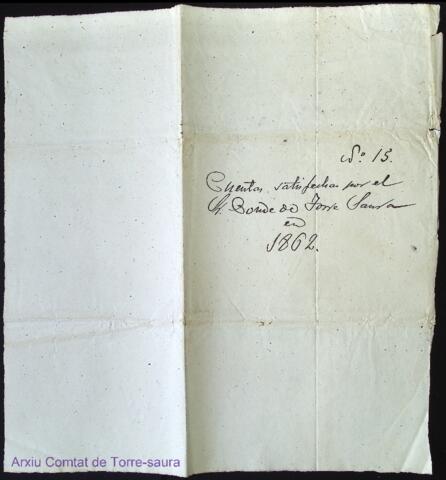 Nº 15.
Cuentas satisfechas por el
Sr. Conde de Torre Saura
en
1862.
Arxiu Comtat de Torre-saura